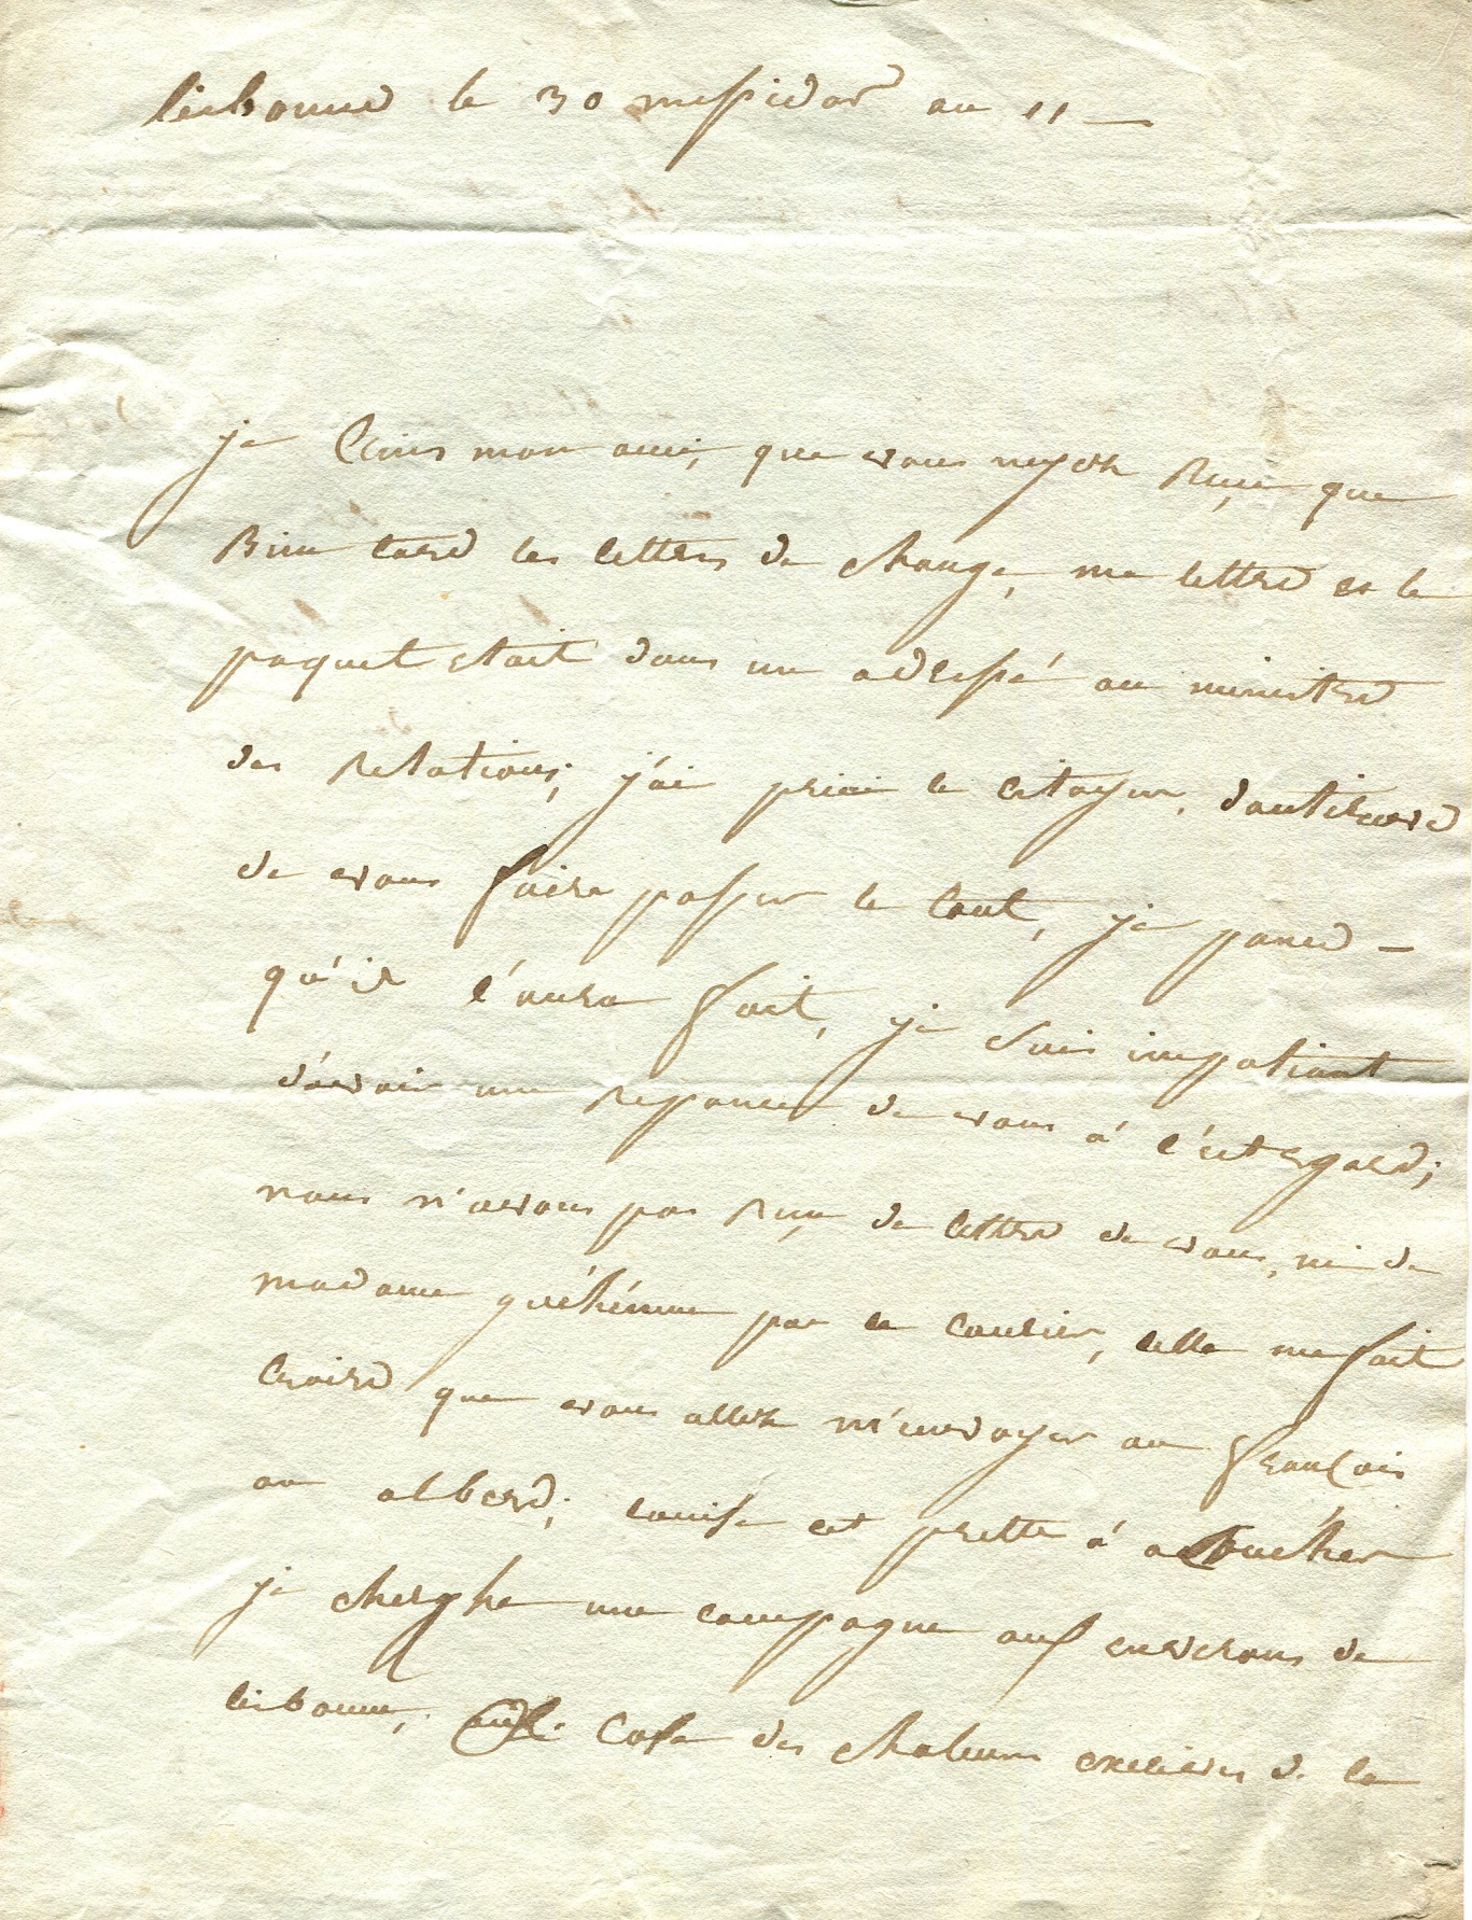 lisbonne le 30 messidor an 11 —
je Crains mon ami, que vous nayéz Reçu que
Bien tard les lettres de change, ma lettre et le
paquet etait dans un adressé au ministre
des Relations; j'ai priai le citoyen, d'autiRive
de vous faire passer le tout, je pance —
qu'il l'aura fait, je suis impatiant
d'avoir une Reponce de vous à l'cet egard;
nous n'avons pas Reçu de lettre de vous, ni de
madame guéhénnue par le courier, cella me fait
Croire que vous allez m'envoyer au françois
ou alberd; louise est prette à accoucher
je cherghe une campagne aux environs de
lisbonne, Cause des chaleurs excésives de la